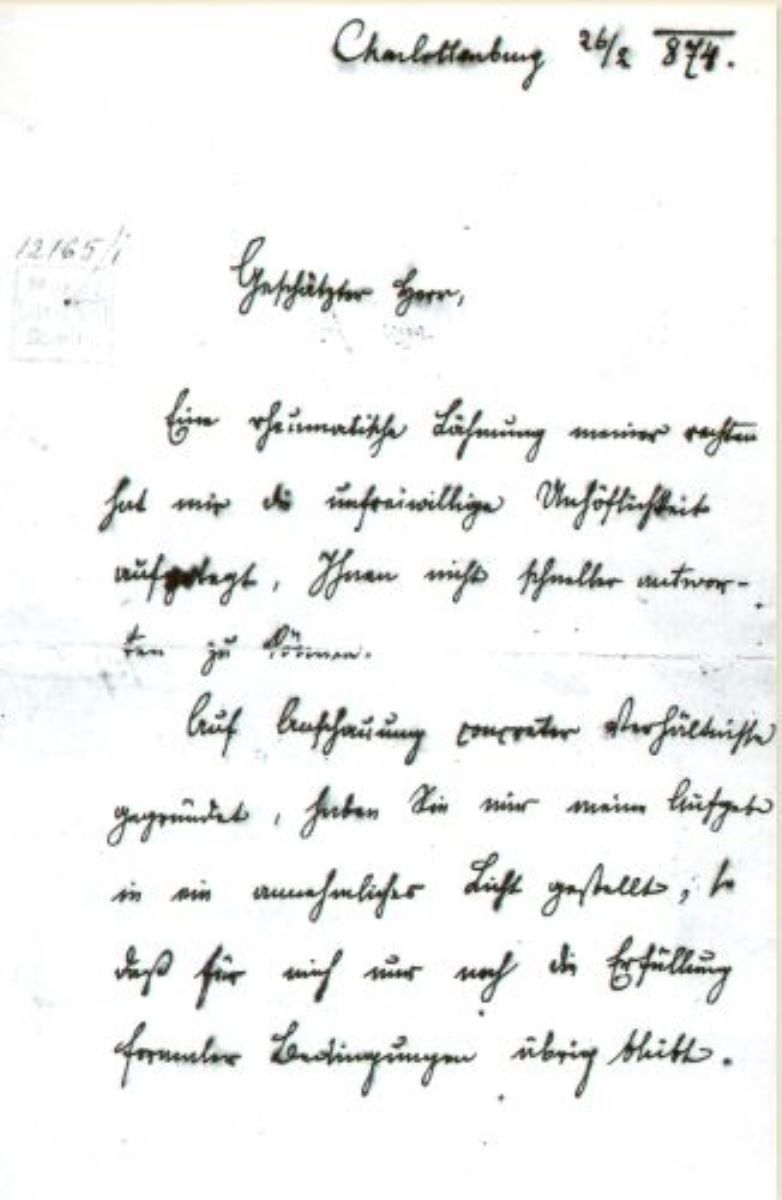 Charlottenburg 26/2 874.
12165/i
Geschätzter Herr,
Eine rheumatische Lähmung meiner rechten
hat mir die unfreiwillige Unhöflichkeit
auferlegt, Ihnen nicht schneller antwor-
ten zu können.
Auf Anschauung concreter Verhältnisse
gegründet, haben Sie mir meine Aufgabe
in ein annehmliches Licht gestellt, so
daß für mich nur noch die Erfüllung
formaler Bedingungen übrig bleibt.